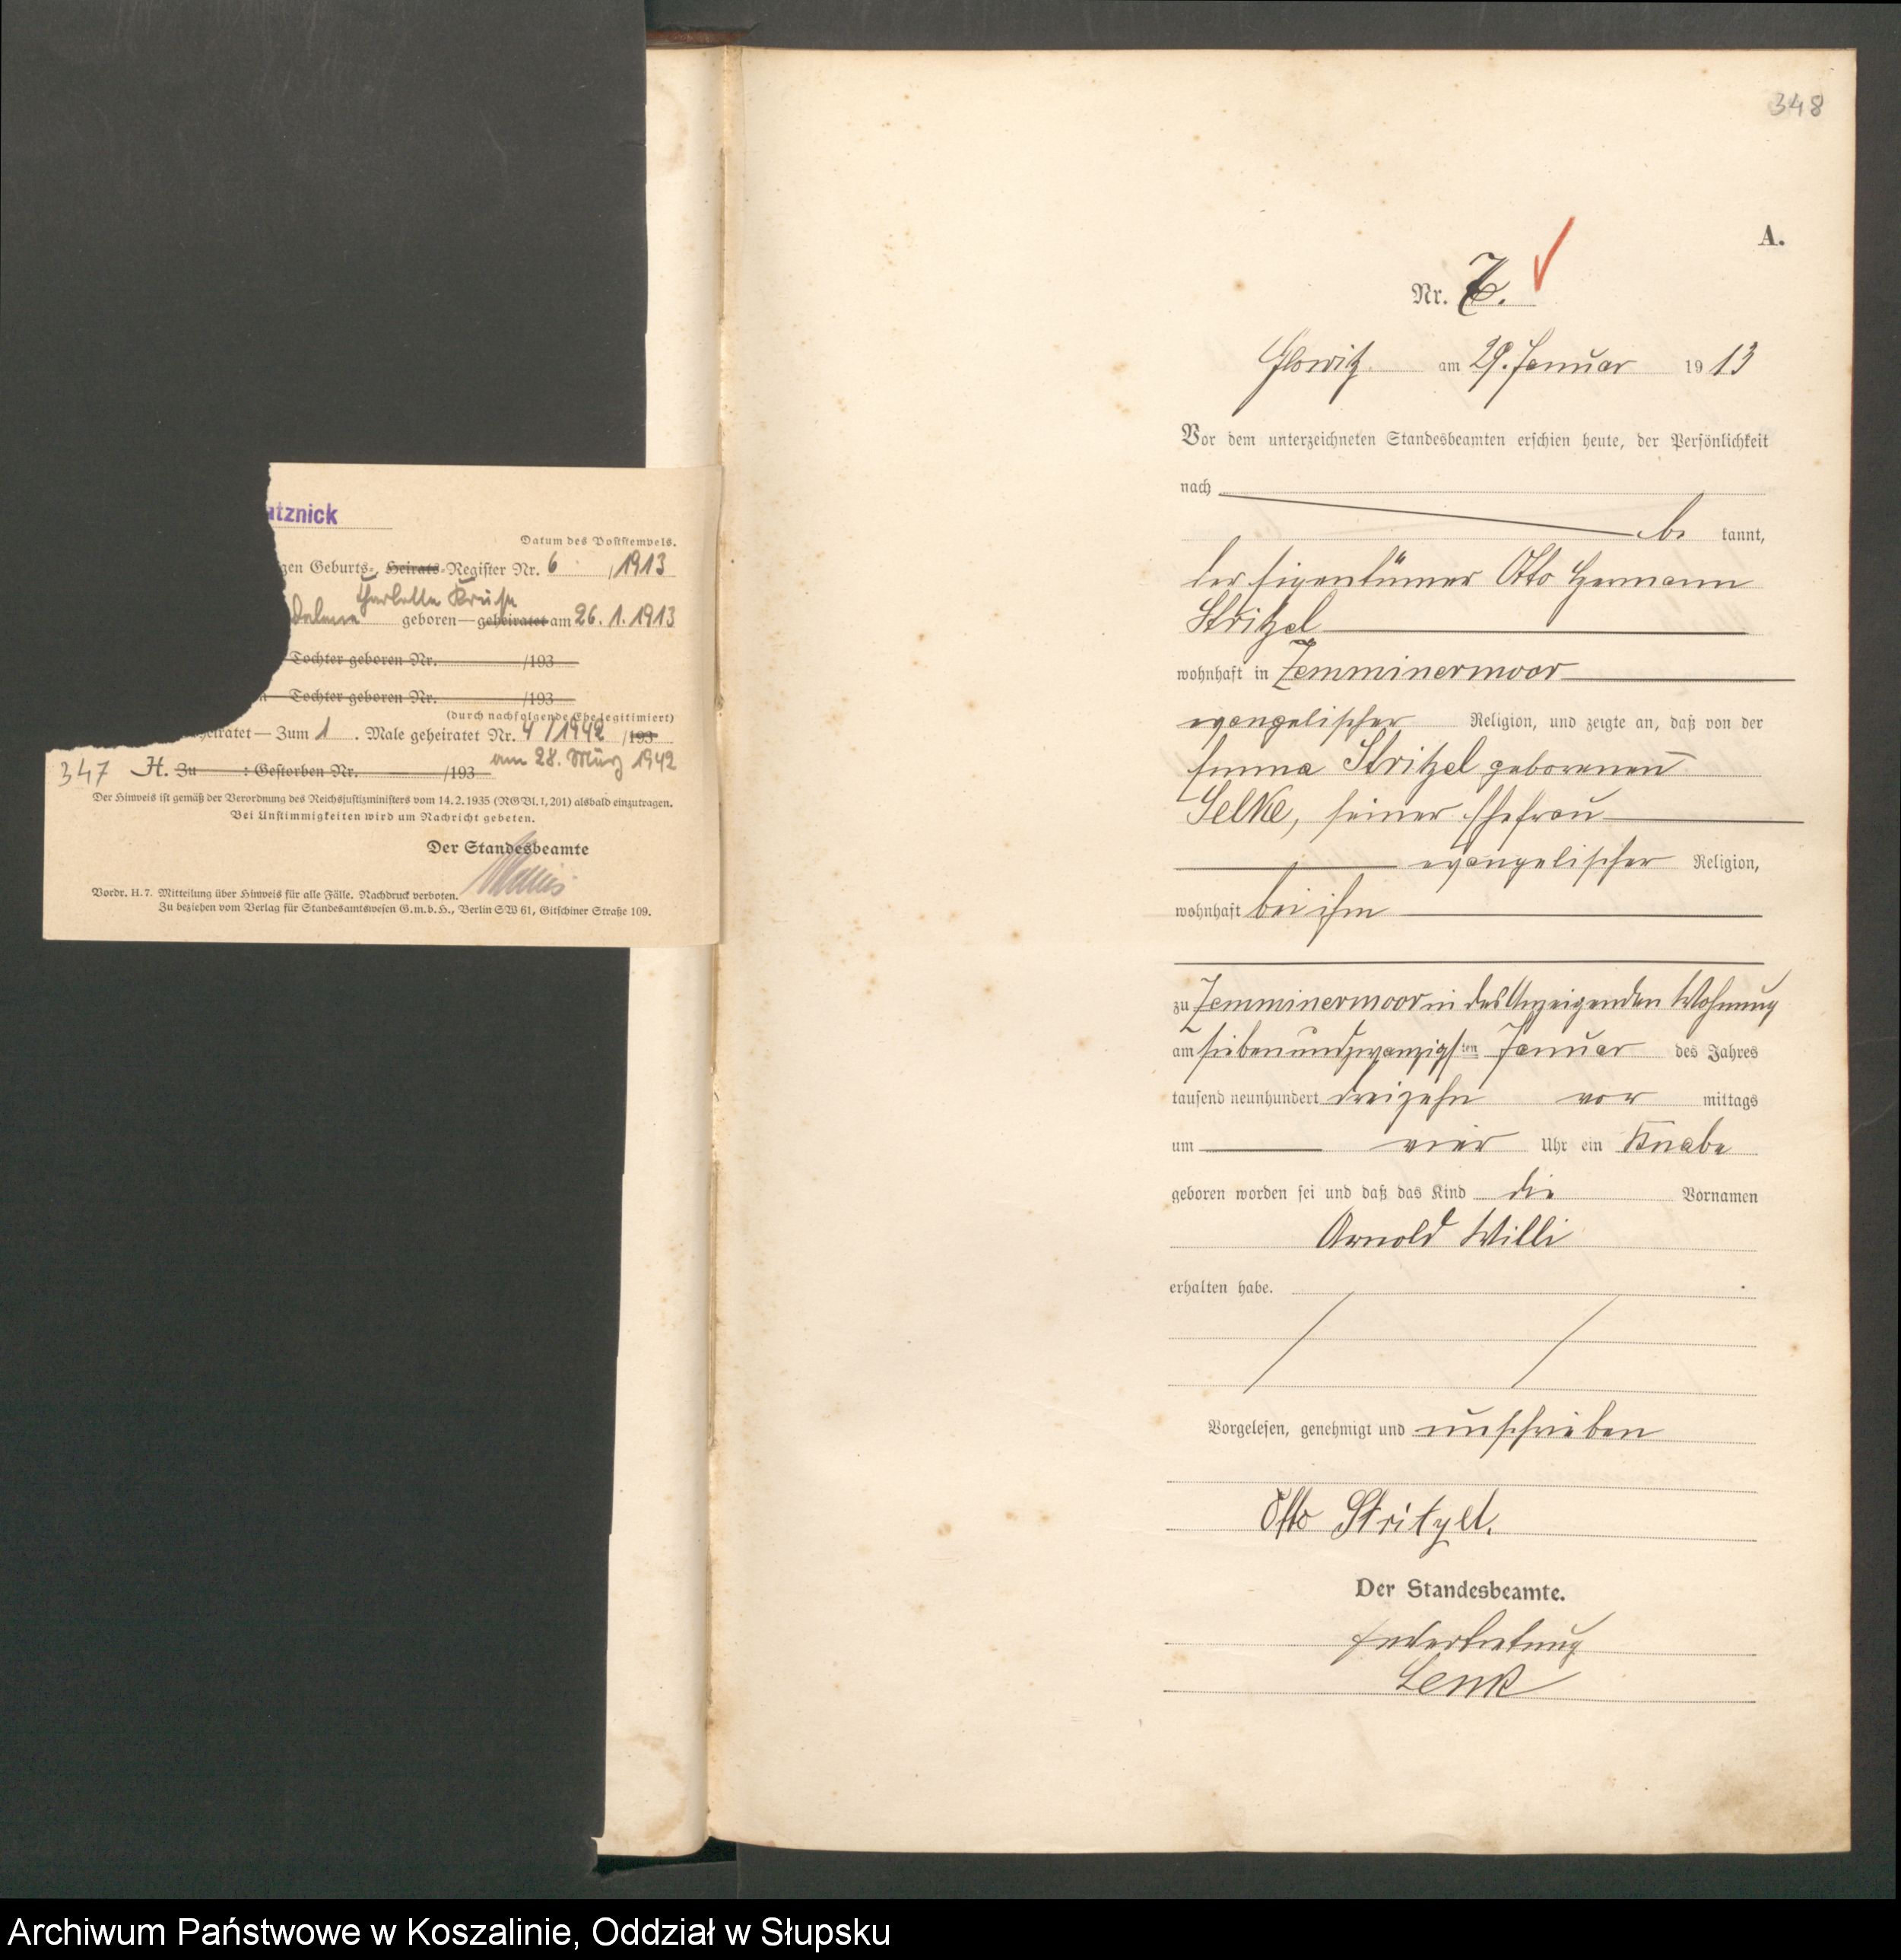 348
A.
Nr. 7.
Glowitz am 29. Januar 1913
Vor dem unterzeichneten Standesbeamten erschien heute, der Persönlichkeit
nach
be kannt,
der Eigentümer Otto Hermann
Stritzel
wohnhaft in Zemminermoor
evangelischer Religion, und zeigte an, daß von der
Emma Stritzel geborenen
Selke, seiner Ehefrau
evangelischer Religion,
wohnhaft bei ihm
zu Zemminermoor in des Anzeigenden Wohnung
am siebenundzwanzigsten Januar des Jahres
tausend neunhundert dreizehn vor mittags
um vier Uhr ein Knabe
geboren worden sei und daß das Kind die Vornamen
Arnold Willi
erhalten habe.
Vorgelesen, genehmigt und unschrieben
Otto Stritzel.
Der Standesbeamte.
In Vertretung
Lenk
atznick
Datum des Poststempels.
gen Geburts-, Heirats-Register Nr. 6 /1913
Kruse
geboren — geheiratet am 26. 1. 1913
Tochter geboren Nr. /193
n Tochter geboren Nr. /193
(durch nachfolgende Ehe legitimiert)
heiratet — Zum 1. Male geheiratet Nr. 4 / 1942 /193
am 28. März 1942
347 H. Zu : Gestorben Nr. /193
Der Hinweis ist gemäß der Verordnung des Reichsjustizministers vom 14. 2. 1935 (RGBl. I, 201) alsbald einzutragen.
Bei Unstimmigkeiten wird um Nachricht gebeten.
Der Standesbeamte
Vordr. H. 7. Mitteilung über Hinweis für alle Fälle. Nachdruck verboten.
Zu beziehen vom Verlag für Standesamtswesen G. m. b. H., Berlin SW 61, Gitschiner Straße 109.
Archiwum Państwowe w Koszalinie, Oddział w Słupsku